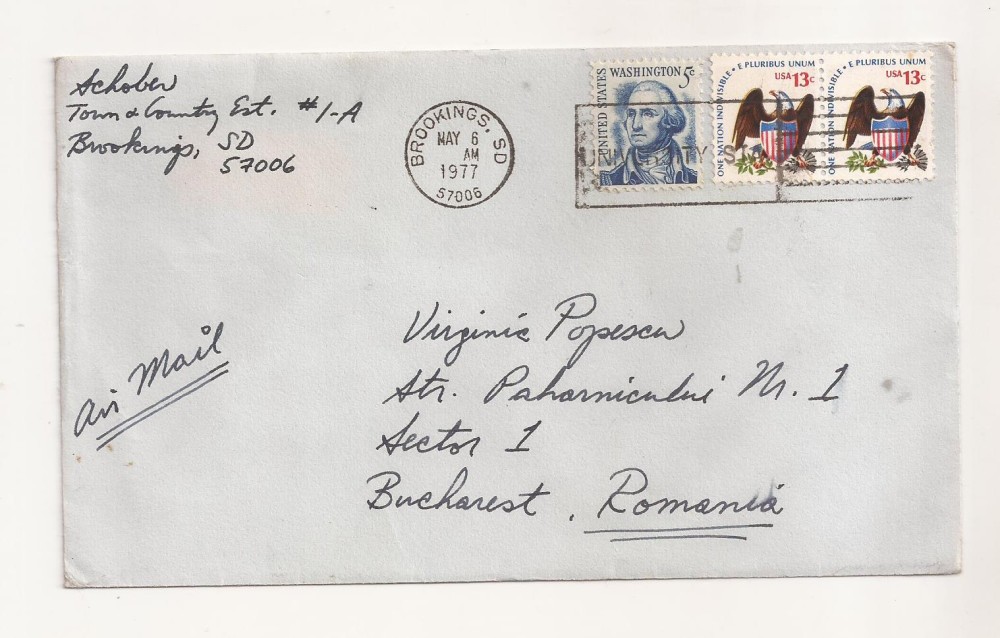 Schober
Town & Country Est. #1-A
Brookings, SD
57006
BROOKINGS, SD
MAY 6
AM
1977
57006
UNITED STATES
WASHINGTON 5c
ONE NATION INDIVISIBLE • E PLURIBUS UNUM
USA 13c
ONE NATION INDIVISIBLE • E PLURIBUS UNUM
USA 13c
Air Mail
Virginia Popescu
Str. Paharnicului Nr. 1
Sector 1
Bucharest, Romania